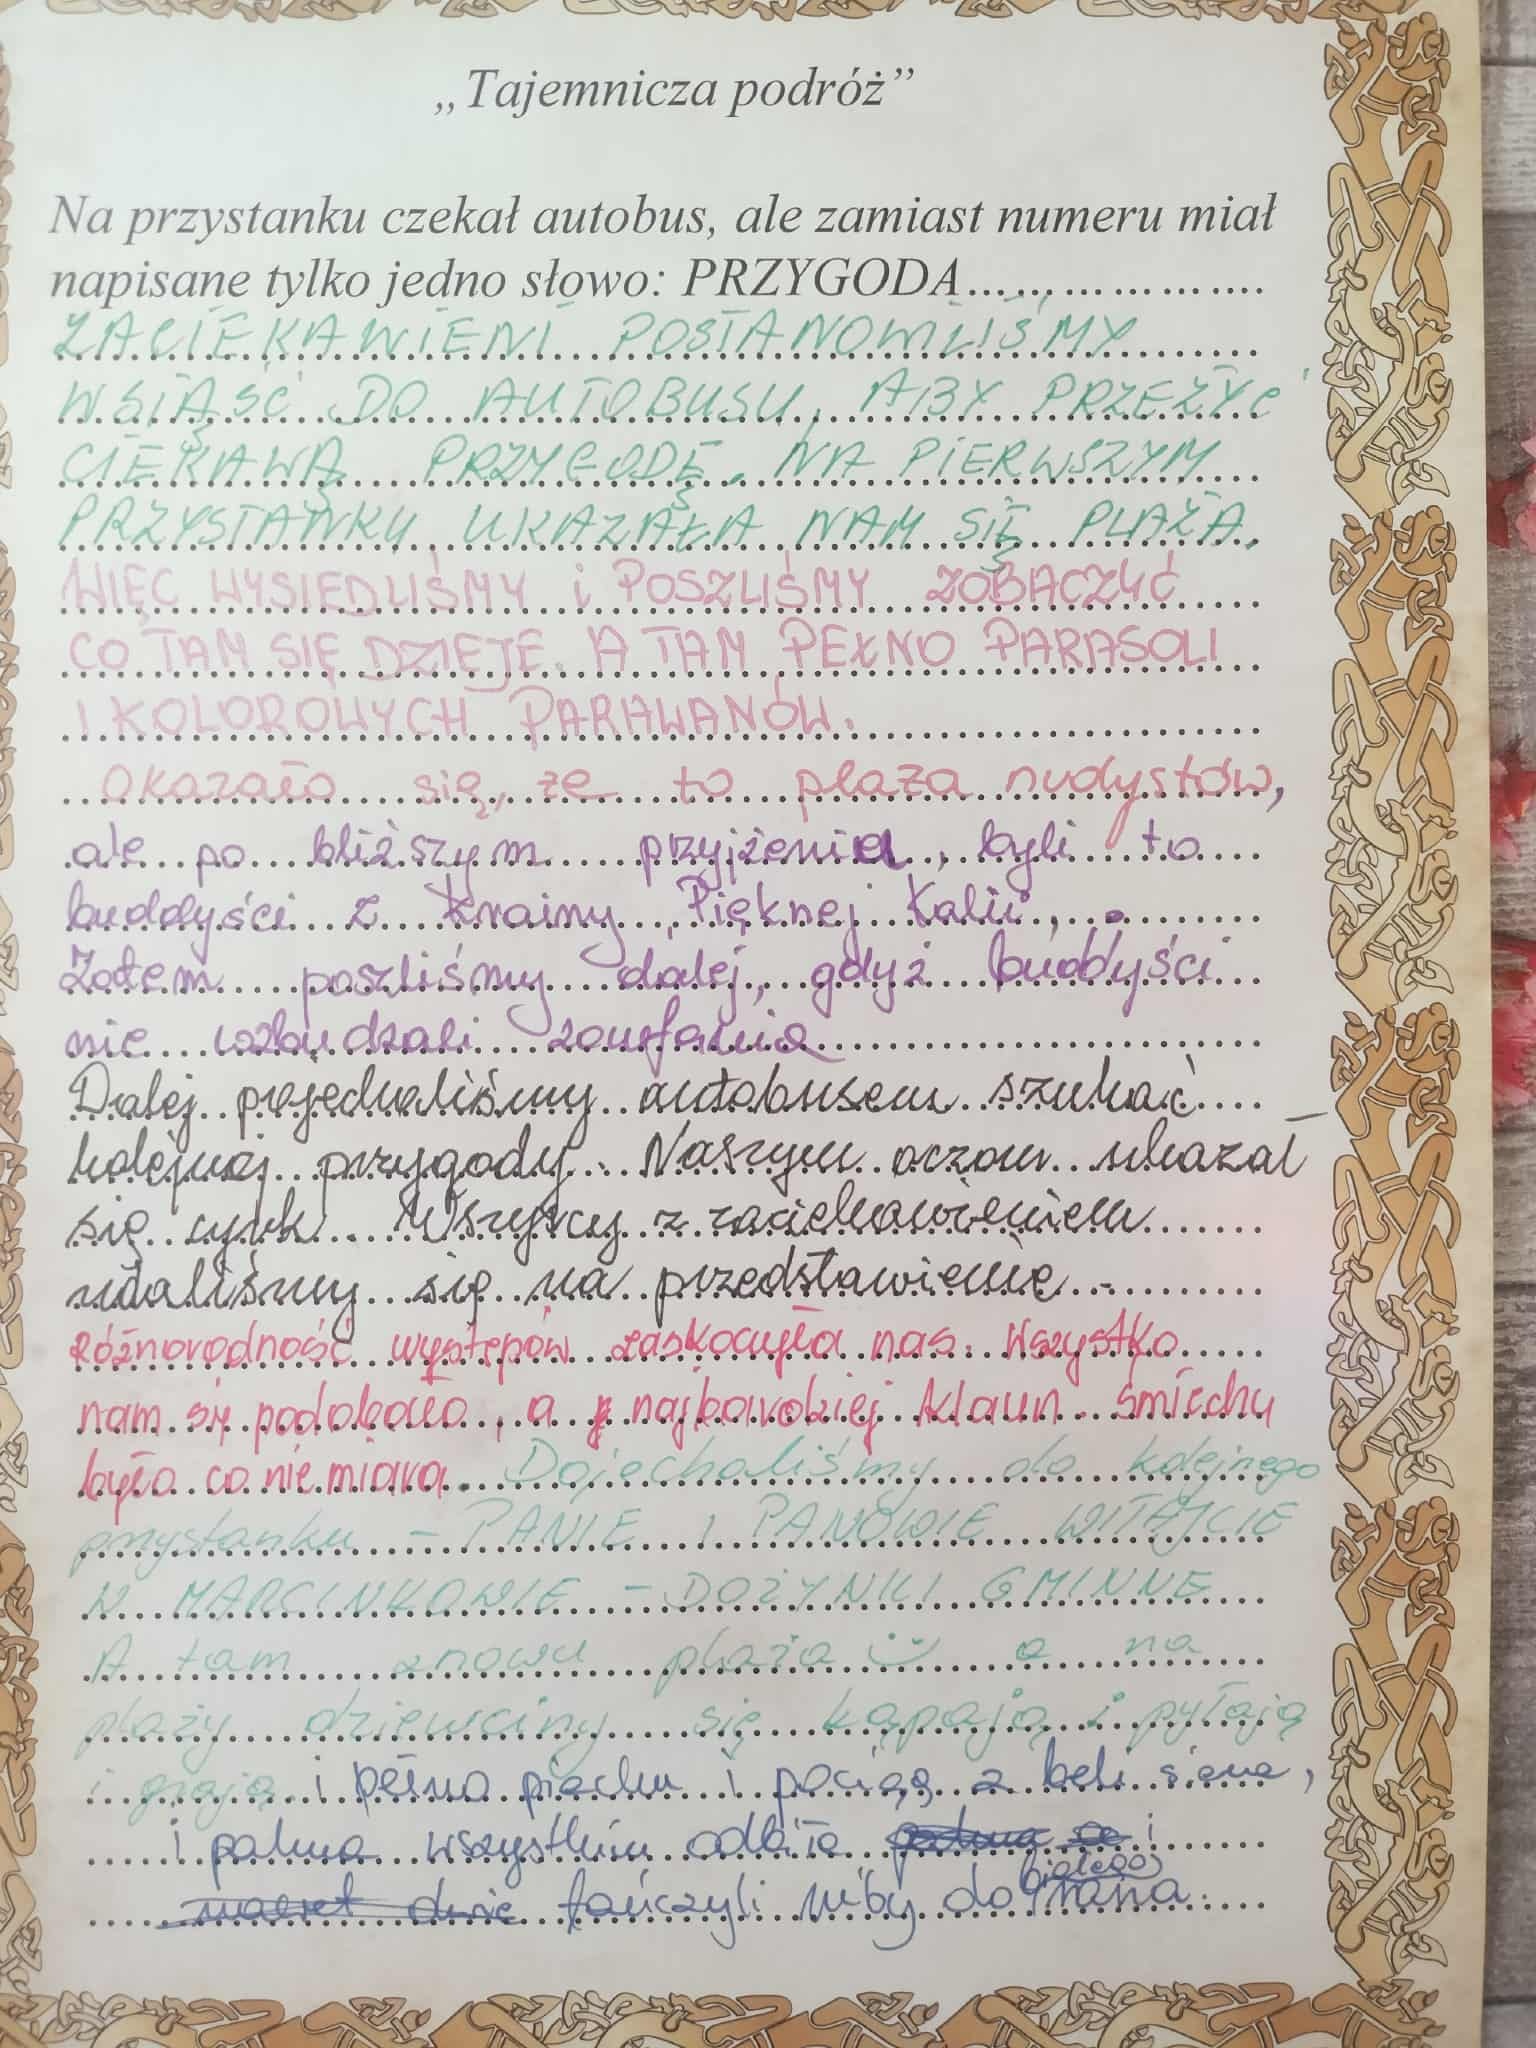 „Tajemnicza podróż”
Na przystanku czekał autobus, ale zamiast numeru miał
napisane tylko jedno słowo: PRZYGODA....................
ZACIEKAWIENI POSTANOWILIŚMY
WSIĄŚĆ DO AUTOBUSU, ABY PRZEŻYĆ
CIEKAWĄ PRZYGODĘ. NA PIERWSZYM
PRZYSTANKU UKAZAŁA NAM SIĘ PLAŻA.
WIĘC WYSIEDLIŚMY i POSZLIŚMY ZOBACZYĆ
CO TAM SIĘ DZIEJE. A TAM PEŁNO PARASOLI
I KOLOROWYCH PARAWANÓW.
Okazało się, że to plaża nudystów,
ale po bliższym przyjżeniu, byli to
buddyści z Krainy Pięknej Kalii.
Zatem poszliśmy dalej, gdyż buddyści
nie wzbudzali zaufania
Dalej pojechaliśmy autobusem szukać
kolejnej przygody. Naszym oczom ukazał
się cyrk. Wszyscy z zaciekawieniem
udaliśmy się na przedstawienie.
Różnorodność występów zaskoczyła nas. Wszystko
nam się podobało, a najbardziej klaun. Śmiechu
było co nie miara. Dojechaliśmy do kolejnego
przystanku - PANIE I PANOWIE WITAJCIE
W MARCINKOWIE - DOŻYNKI GMINNE
A tam znowu plaża a na
plaży dziewczyny się kąpają i pytają
i grają i pełno piachu i pociąg z beli siana,
i palma wszystkim odbiła i
tańczyli niby do białego rana.